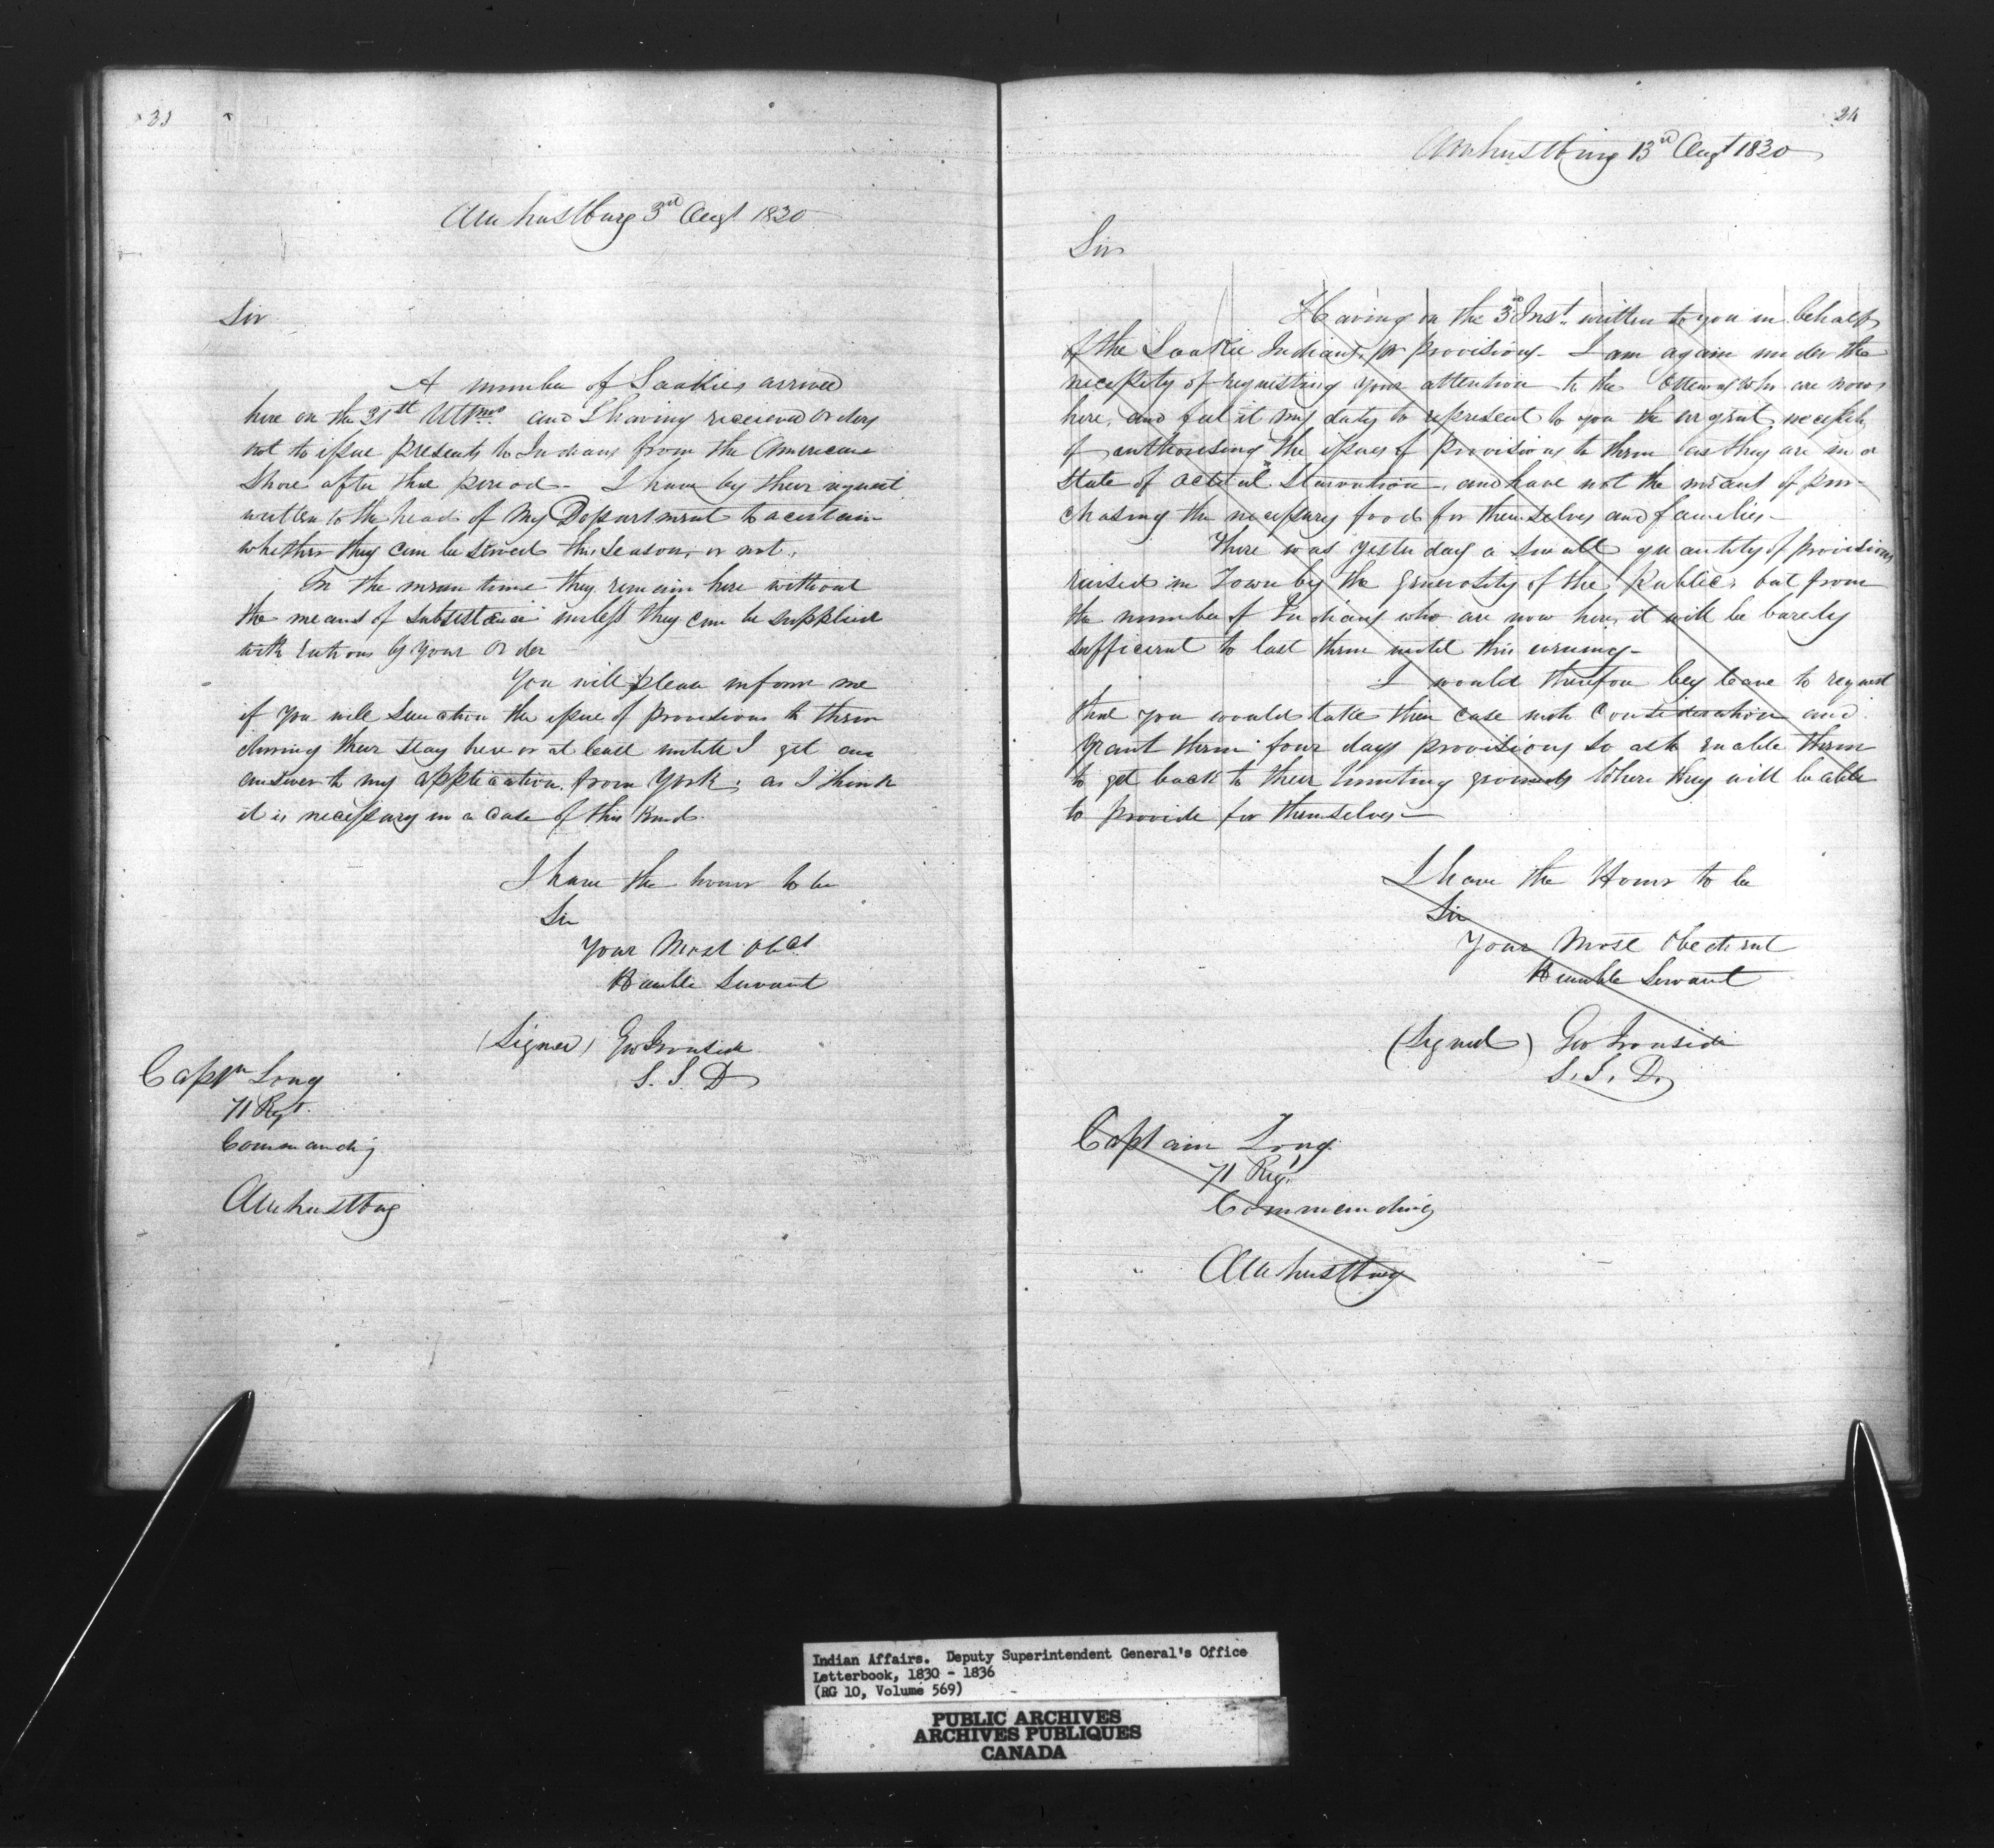 33
Amherstburg 3rd Augt 1830
Sir
A number of Saakies arrived
here on the 31st Ultmo and I having received orders
not to issue presents to Indians from the American
Shore after that period - I have by their request
written to the head of My Department to acertain
whether they can be served this Season, or not,
In the mean time they remain here without
the means of subsistance unless they can be supplied
with rations by Your Order
You will please inform me
if You will Sanction the issue of provisions to them
during their stay here or at least untill I get an
answer to my application from York; as I think
it is necessary in a Case of this kind.
I have the honor to be
Sir
Your Most Obet
Humble Servant
(Signed) Geo Ironside
S. I. D
Captn Long
71 Regt.
Commanding
Amherstburg
34
Amherstburg 13d Augt 1830
Sir
Having on the 3d Inst. written to you in behalf
of the Saakie Indians for provisions - I am again under the
necessity of requesting your attention to the Ottawas who are now
here, and feel it my duty to represent to you the urgent necessity
of authorising the issues of provisions to them as they are in a
State of actual Starvation, and have not the means of pur-
chasing the necessary food for themselves and families -
There was yesterday a small quantity of provisions
raised in Town by the generosity of the Public, but from
the number of Indians who are now here, it will be barely
sufficient to last them until this evening -
I would therefore beg leave to request
that you would take their case into Consideration and
grant them four days provisions so as to enable them
to get back to their hunting grounds where they will be able
to provide for themselves -
I have the Honor to be
Sir
Your Most Obedient
Humble Servant
(Signed) Geo Ironside
S. I. D.
Captain Long
71 Regt
Commanding
Amherstburg
Indian Affairs. Deputy Superintendent General's Office
Letterbook, 1830 - 1836
(RG 10, Volume 569)
PUBLIC ARCHIVES
ARCHIVES PUBLIQUES
CANADA